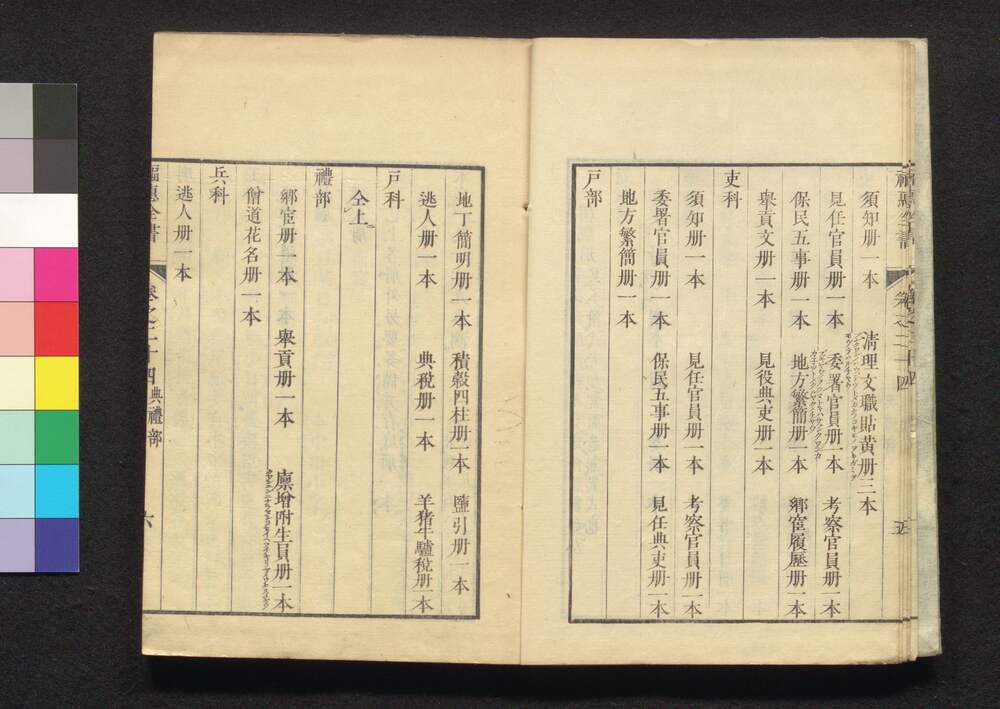 福惠全書 卷之二十四 五
須知册一本 清理文職貼黃册三本
見任官員册一本 委署官員册一本 考察官員册一本
保民五事册一本 地方繁簡册一本 鄉宦履歷册一本
舉貢文册一本 見役典吏册一本
吏科
須知册一本 見任官員册一本 考察官員册一本
委署官員册一本 保民五事册一本 見任典吏册一本
地方繁簡册一本
戸部
地丁簡明册一本 積穀四柱册一本 鹽引册一本
逃人册一本 典稅册一本 羊猪牛驢稅册一本
戸科
仝上
禮部
鄉宦册一本 舉貢册一本 廪增附生員册一本
僧道花名册一本
兵科
逃人册一本
福惠全書 卷之二十四 典禮部 六